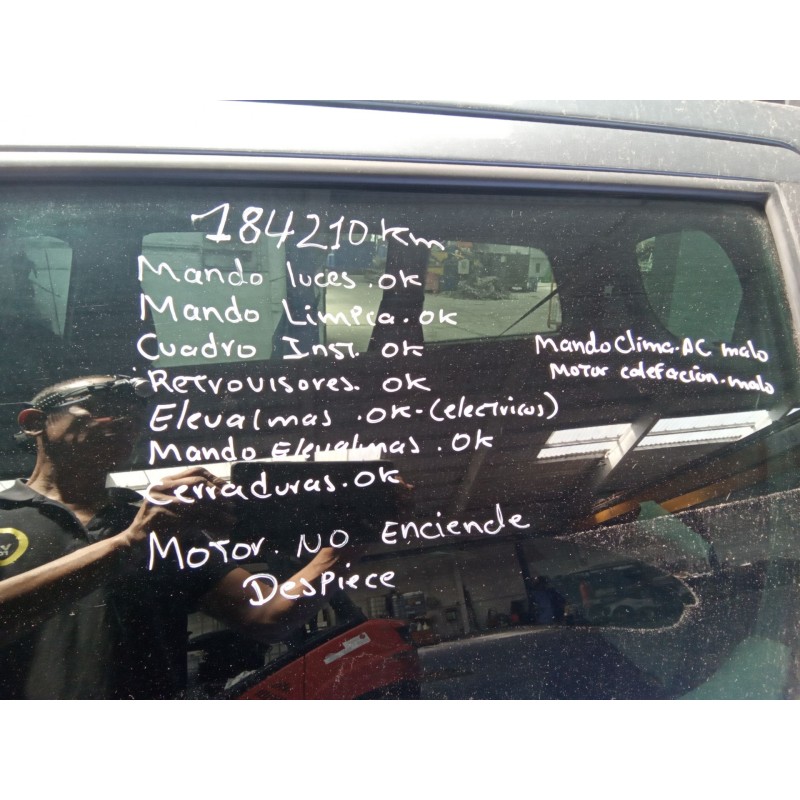 184210.km
Mando luces.ok
Mando Limpia.ok
Cuadro Inst. ok
Retrovisores. ok
Elevalmas .ok-(electricos)
Mando Elevalmas .ok
Cerraduras.ok
Motor. NO Enciende
Despiece
Mando Clima.AC malo
Motor calefacion.malo